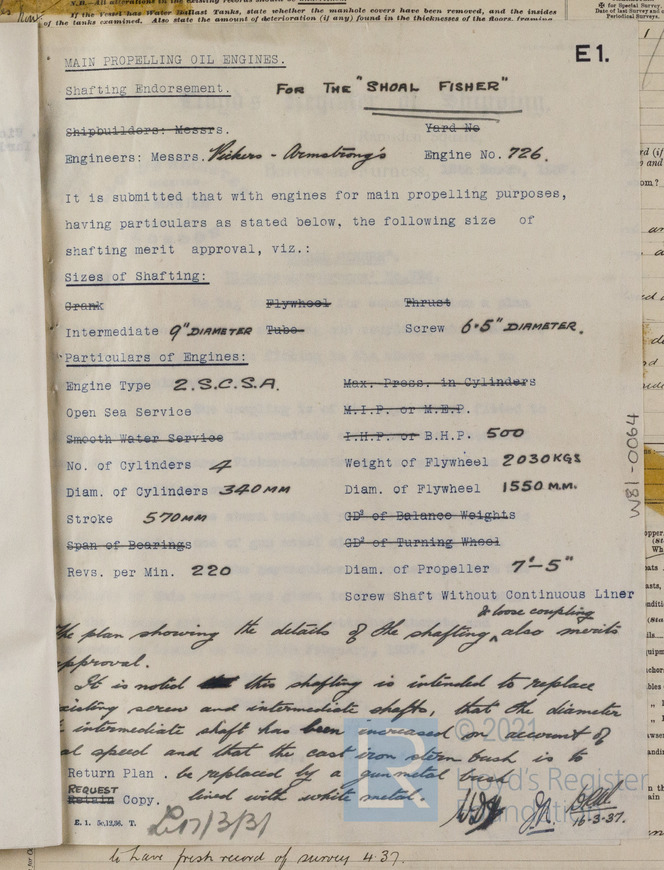 N.B.—All alterations in the existing records should be
If the Vessel has Water Ballast Tanks, state whether the manhole covers have been removed, and the insides
of the tanks examined. Also state the amount of deterioration (if any) found in the thicknesses of the floors, framing
for Special Survey.
Date of last Survey and
Periodical Surveys.
E1.
MAIN PROPELLING OIL ENGINES.
Shafting Endorsement. FOR THE "SHOAL FISHER"
Shipbuilders: Messrs. Yard No
Engineers: Messrs. Vickers - Armstrong's Engine No. 726.
It is submitted that with engines for main propelling purposes,
having particulars as stated below, the following size of
shafting merit approval, viz.:
Sizes of Shafting:
Crank Flywheel Thrust
Intermediate 9" DIAMETER Tube Screw 6·5" DIAMETER.
Particulars of Engines:
Engine Type 2.S.C.S.A. Max. Press. in Cylinders
Open Sea Service M.I.P. or M.E.P.
Smooth Water Service I.H.P. or B.H.P. 500
No. of Cylinders 4 Weight of Flywheel 2030 KGS
Diam. of Cylinders 340 MM Diam. of Flywheel 1550 M.M.
Stroke 570 MM GD² of Balance Weights
Span of Bearings GD² of Turning Wheel
Revs. per Min. 220 Diam. of Propeller 7'-5"
Screw Shaft Without Continuous Liner
& loose coupling
The plan showing the details of the shafting ^ also merits
approval.
It is noted this shafting is intended to replace
existing screw and intermediate shafts, that the diameter
intermediate shaft has been increased on account of
speed and that the cast iron stern bush is to
Return Plan. be replaced by a gunmetal bush
REQUEST
Retain Copy. lined with white metal.
E. 1. 5c,12,36. T.
16-3-37.
W81-0064
© 2021
Lloyd's Register
Foundation
to have fresh record of survey 4.37.